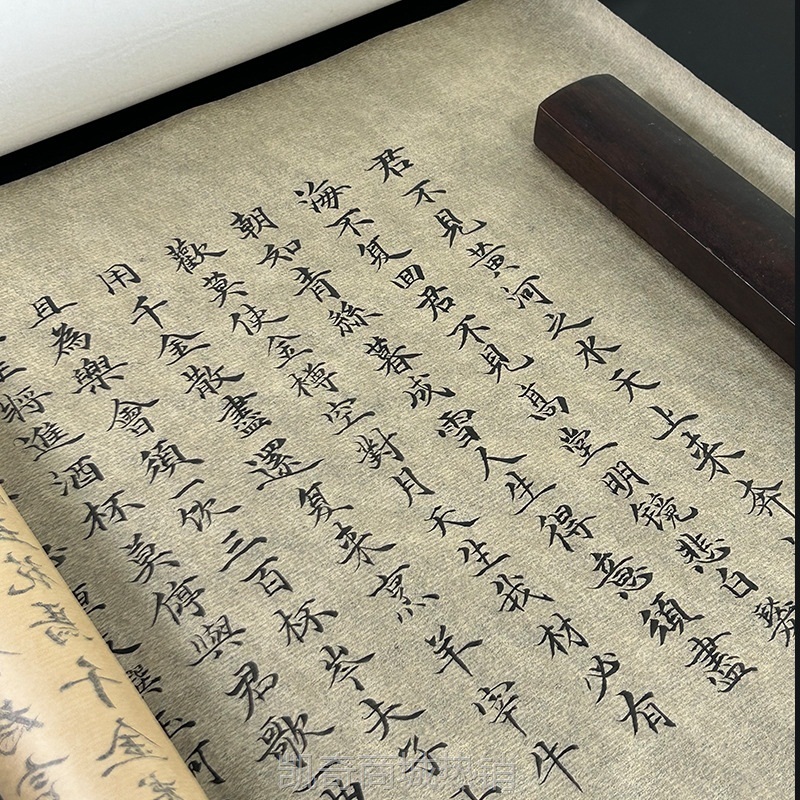 君不見黄河之水天上来奔
海不复回君不見高堂明镜悲白髮
朝如青絲暮成雪人生得意須盡
歡莫使金樽空對月天生我材必有
用千金散盡還复来烹羊宰牛
且為樂會須一饮三百杯岑夫
將進酒杯莫停與君歌
饌玉何
花馬千金